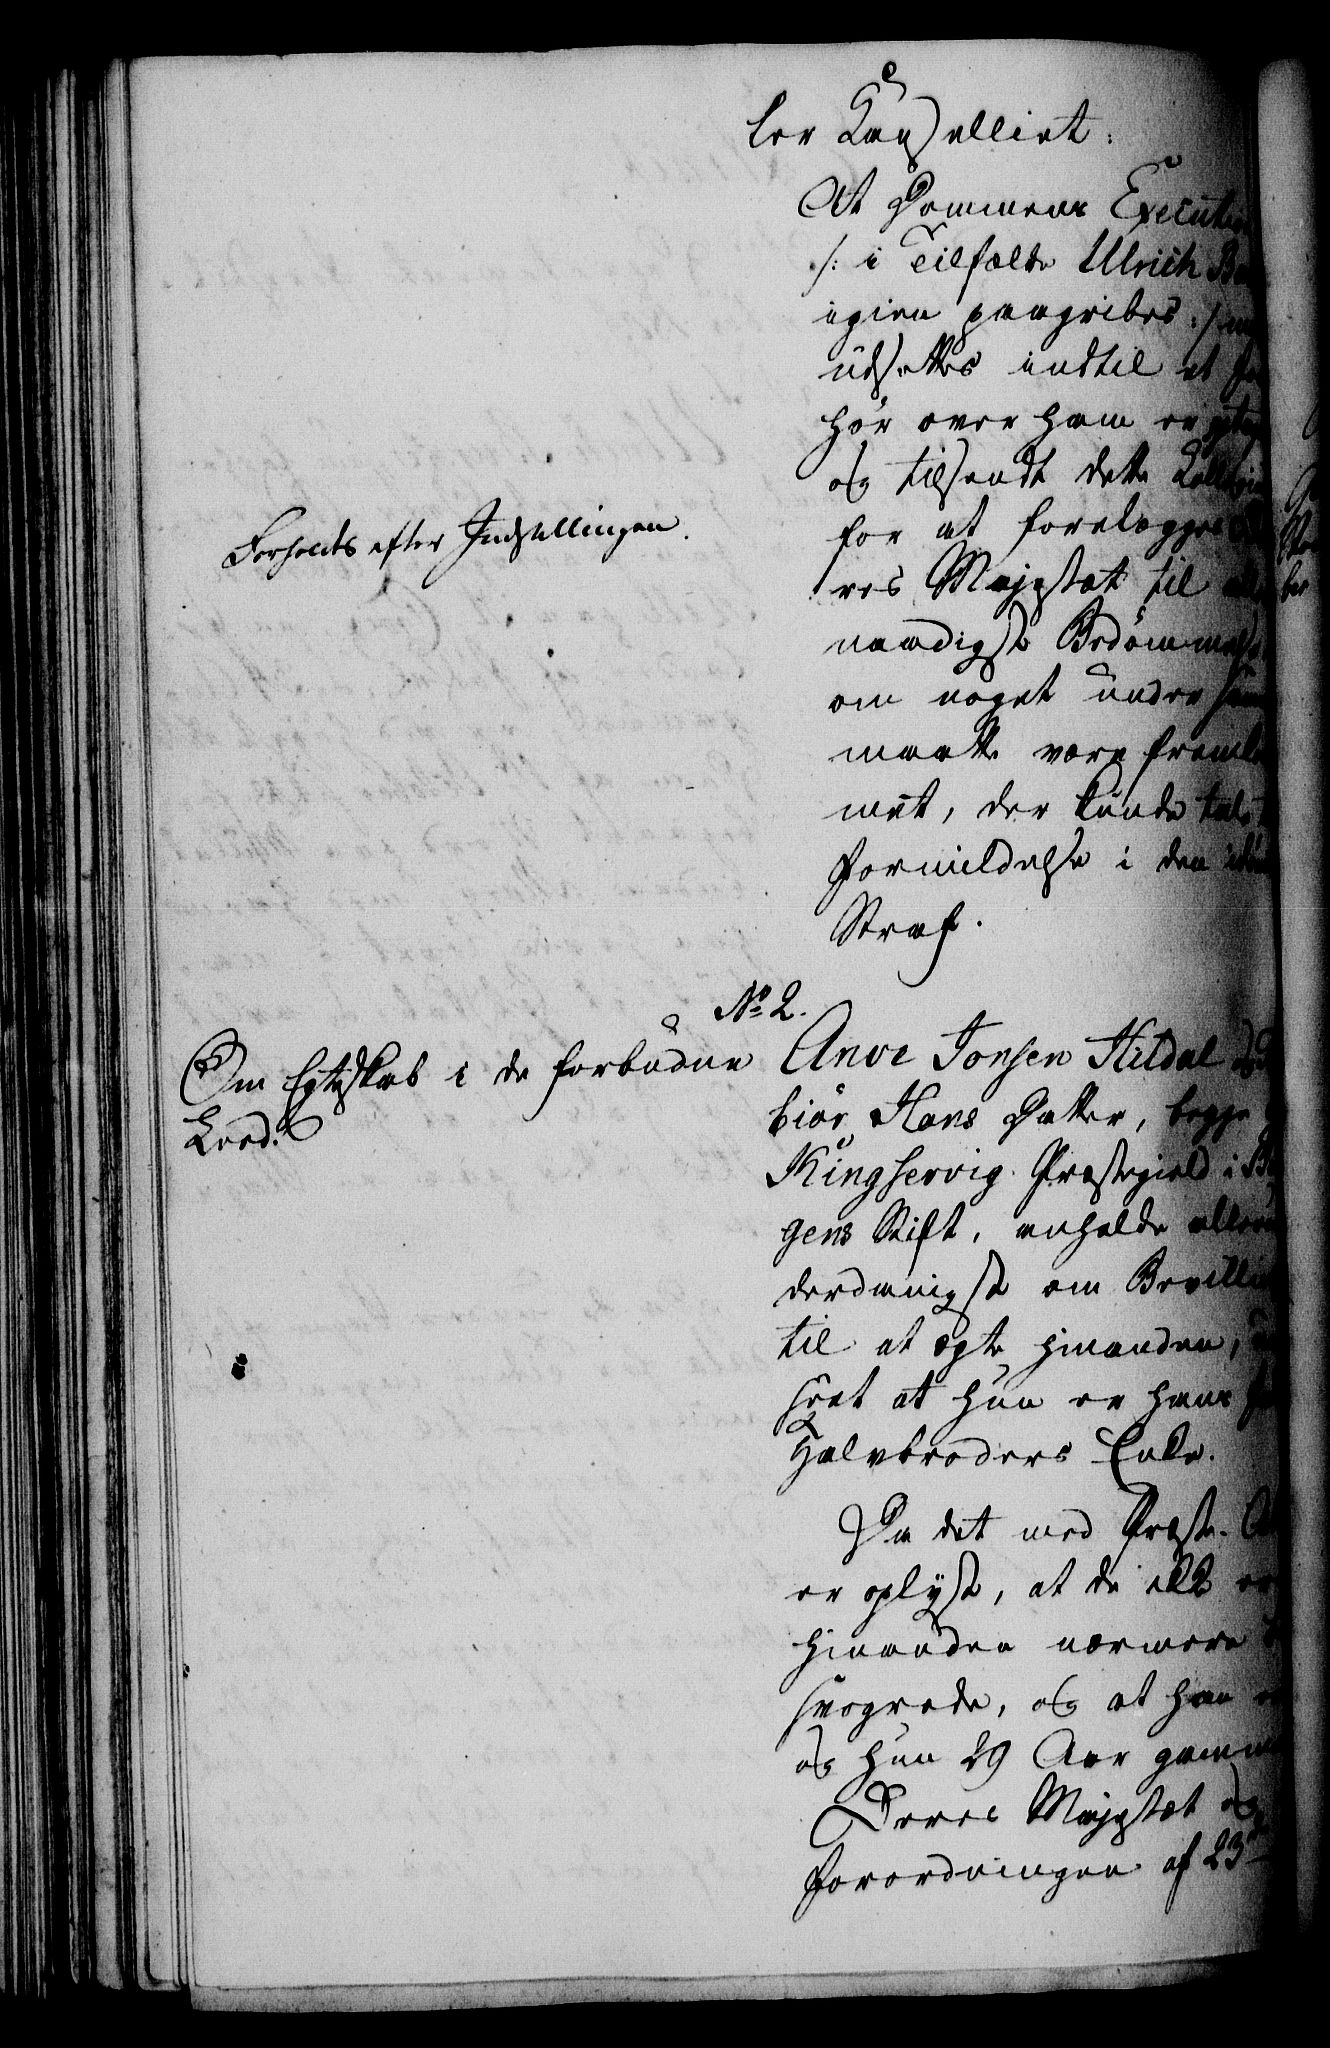 ler Kancelliet:
At Dommens Execution
/: i Tilfælde Ulrich
igien paagribes :/
udsættes indtil et
hør over ham er
og tilsendt dette
for at forelægges
res Majestæt til
naadigst Bedømmelse
om noget under
maatte være
met, der kunde tale
Formildelse i den
Straf.
Forholdes efter Indstillingen.
No 2.
Om Egteskab i de forbudne
Leed.
Anve Jonsen Hildal
biør Hans Datter, begge
Kingservig Præstegield i
gens Stift, anholde allerun
derdanigst om Bevilling
til at ægte hinanden,
seet at hun er hans
Halvbroders Enke.
Da det med Præste-
er oplyst, at de ikke ere
hinanden nærmere
svogrede, og at han
og hun 29 Aar gammel
Deres Majestæt
Forordningen af 23de